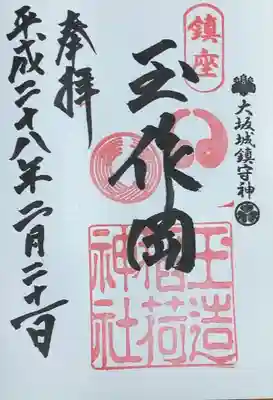 鎮座
大坂城鎮守神
玉作岡
玉造稲荷神社
奉拝
平成二十八年二月二十一日